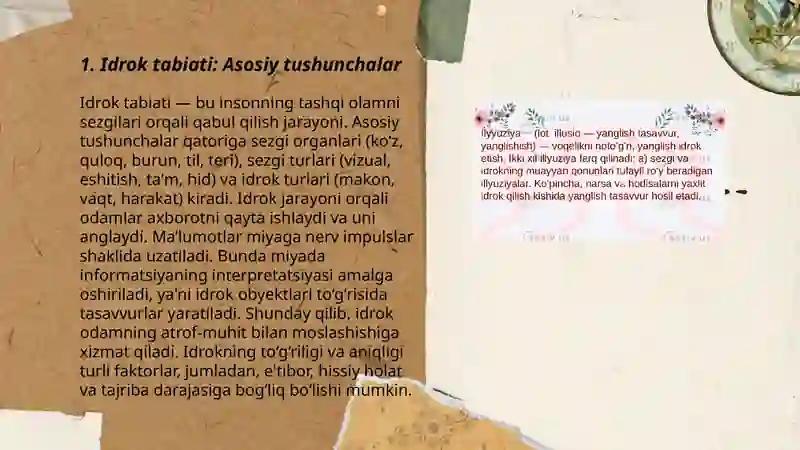 1. Idrok tabiati: Asosiy tushunchalar
Idrok tabiati — bu insonning tashqi olamni
sezgilari orqali qabul qilish jarayoni. Asosiy
tushunchalar qatoriga sezgi organlari (ko'z,
quloq, burun, til, teri), sezgi turlari (vizual,
eshitish, ta'm, hid) va idrok turlari (makon,
vaqt, harakat) kiradi. Idrok jarayoni orqali
odamlar axborotni qayta ishlaydi va uni
anglaydi. Ma'lumotlar miyaga nerv impulslar
shaklida uzatiladi. Bunda miyada
informatsiyaning interpretatsiyasi amalga
oshiriladi, ya'ni idrok obyektlari to'g'risida
tasavvurlar yaratiladi. Shunday qilib, idrok
odamning atrof-muhit bilan moslashishiga
xizmat qiladi. Idrokning to'g'riligi va aniqligi
turli faktorlar, jumladan, e'tibor, hissiy holat
va tajriba darajasiga bog'liq bo'lishi mumkin.
Illyuziya — (lot. illusio — yanglish tasavvur,
yanglishish) — voqelikni noto'g'ri, yanglish idrok
etish. Ikki xil illyuziya farq qilinadi: a) sezgi va
idrokning muayyan qonunlari tufayli ro'y beradigan
illyuziyalar. Ko'pincha, narsa va hodisalarni yaxlit
idrok qilish kishida yanglish tasavvur hosil etadi.